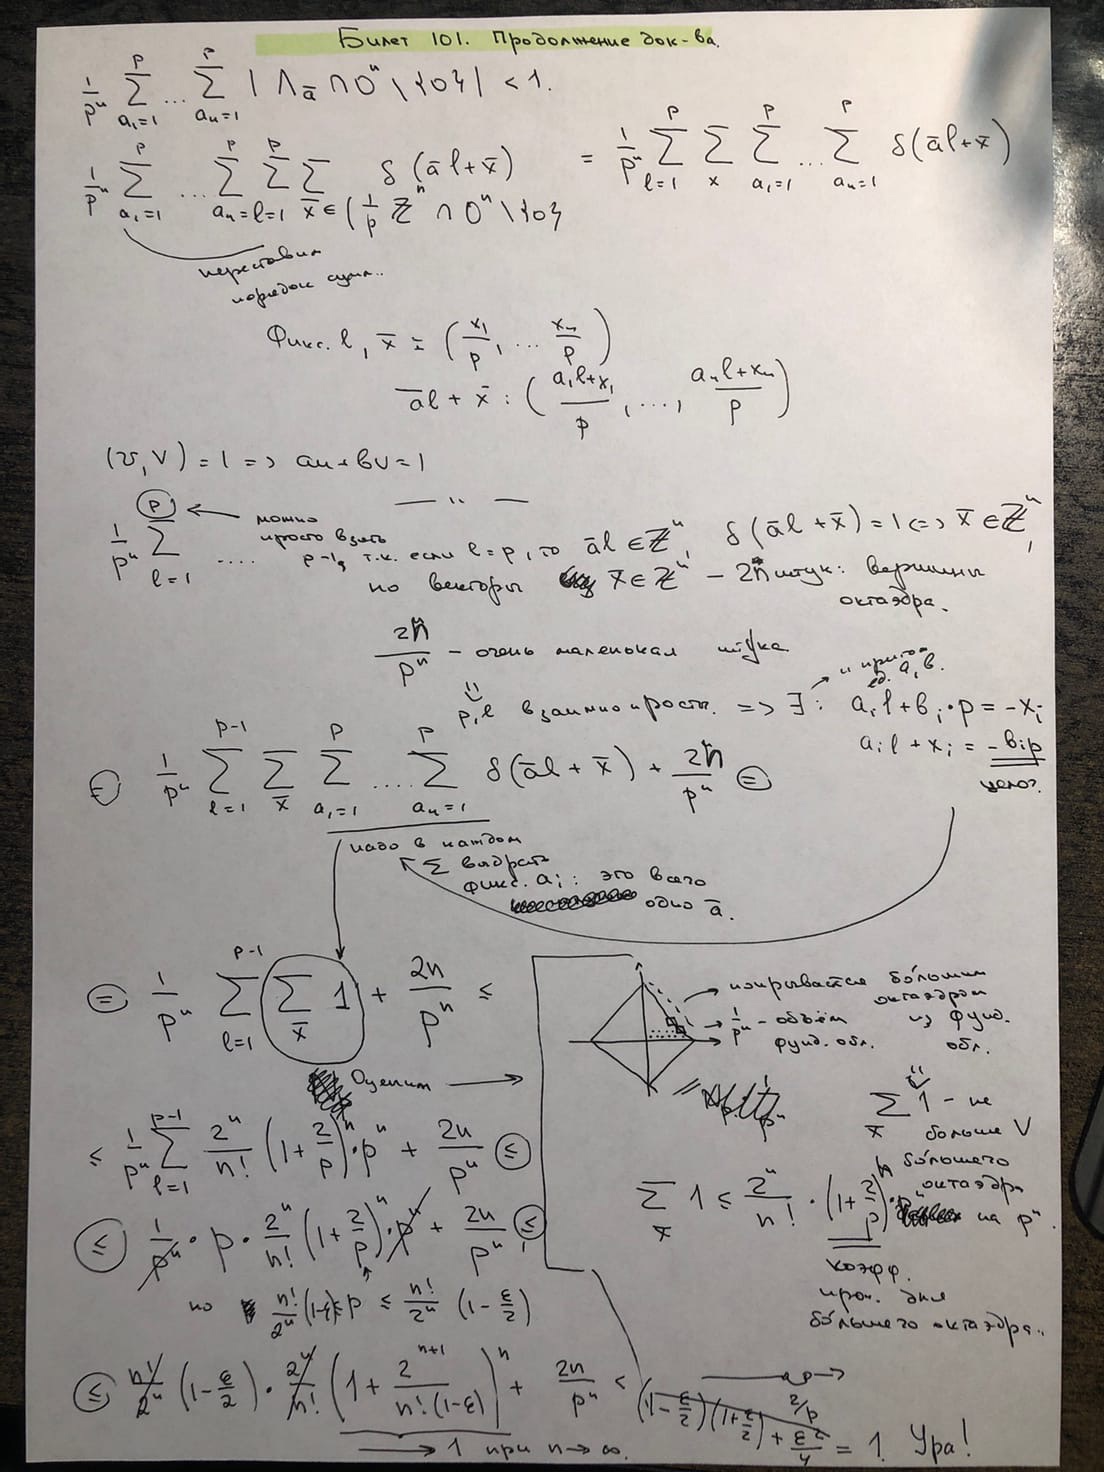 Билет 101. Продолжение док-ва.
1/pⁿ ∑_{a₁=1}^{p} ... ∑_{aₙ=1}^{p} | Λ_ā ∩ Oⁿ \ {0} | < 1.
1/pⁿ ∑_{a₁=1}^{p} ... ∑_{aₙ=1}^{p} ∑_{l=1}^{p} ∑_{x̄ ∈ (1/p ℤⁿ ∩ Oⁿ \ {0}} δ(āl + x̄) = 1/pⁿ ∑_{l=1}^{p} ∑_{x} ∑_{a₁=1}^{p} ... ∑_{aₙ=1}^{p} δ(āl + x̄)
переставим
порядок сумм..
Фикс. l, x̄ = (x₁/p, ... xₙ/p)
āl + x̄ : ((a₁l + x₁)/p, ..., (aₙl + xₙ)/p)
(u, v) = 1 => au + bv = 1
— " —
1/pⁿ ∑_{l=1}^{p} ....
можно
просто взять
p-1, т.к. если l = p, то āl ∈ ℤⁿ, δ(āl + x̄) = 1 <=> x̄ ∈ ℤⁿ,
но векторы x̄ ∈ ℤⁿ – 2n штук: вершины
октаэдра.
2n/pⁿ – очень маленькая штука
p, l взаимнопросты. => ∃ : aᵢl + bᵢ·p = -xᵢ
и притом
ед. a, b.
aᵢl + xᵢ = -bᵢp
целое.
= 1/pⁿ ∑_{l=1}^{p-1} ∑_{x̄} ∑_{a₁=1}^{p} .... ∑_{aₙ=1}^{p} δ(āl + x̄) + 2n/pⁿ =
надо в каждом
∑ выбрать
фикс. aᵢ: это всего
одно ā.
= 1/pⁿ ∑_{l=1}^{p-1} ∑_{x̄} 1 + 2n/pⁿ ≤
Оценим
покрывается бо́льшим
октаэдром
из фунд.
обл.
1/pⁿ – объём
фунд. обл.
∑_{x̄} 1 – не
больше V
бо́льшего
октаэдра
на pⁿ.
∑_{x} 1 ≤ 2ⁿ/n! · (1 + 2/p)ⁿ · pⁿ
коэфф.
проп. для
бо́льшего октаэдра..
≤ 1/pⁿ ∑_{l=1}^{p-1} 2ⁿ/n! (1 + 2/p)ⁿ · pⁿ + 2n/pⁿ ≤
≤ 1/pⁿ · p · 2ⁿ/n! (1 + 2/p)ⁿ · pⁿ + 2n/pⁿ ≤
но n!/2ⁿ (1-ε) ≤ p ≤ n!/2ⁿ (1 - ε/2)
≤ n!/2ⁿ (1 - ε/2) · 2ⁿ/n! (1 + 2ⁿ⁺¹/(n!(1-ε)))ⁿ + 2n/pⁿ < (1 - ε/2)(1 + ε/2) + ε²/4 = 1. Ура!
2/p
→ 1 при n → ∞.